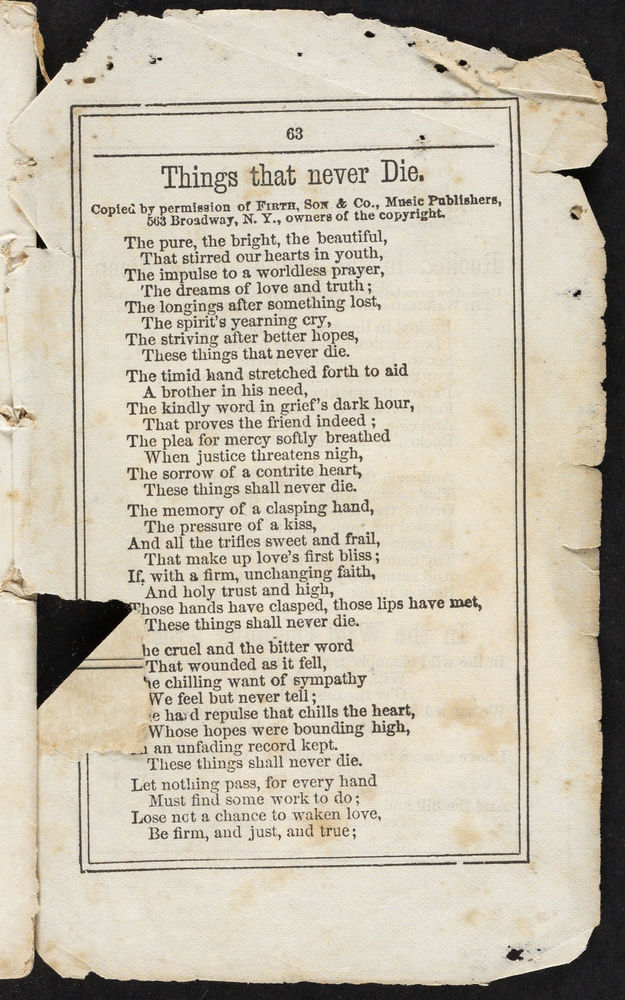 63
Things that never Die.
Copied by permission of FIRTH, SON & Co., Music Publishers,
563 Broadway, N. Y., owners of the copyright.
The pure, the bright, the beautiful,
That stirred our hearts in youth,
The impulse to a worldless prayer,
The dreams of love and truth;
The longings after something lost,
The spirit's yearning cry,
The striving after better hopes,
These things that never die.
The timid hand stretched forth to aid
A brother in his need,
The kindly word in grief's dark hour,
That proves the friend indeed;
The plea for mercy softly breathed
When justice threatens nigh,
The sorrow of a contrite heart,
These things shall never die.
The memory of a clasping hand,
The pressure of a kiss,
And all the trifles sweet and frail,
That make up love's first bliss;
If, with a firm, unchanging faith,
And holy trust and high,
Those hands have clasped, those lips have met,
These things shall never die.
he cruel and the bitter word
That wounded as it fell,
he chilling want of sympathy
We feel but never tell;
e hard repulse that chills the heart,
Whose hopes were bounding high,
an unfading record kept.
These things shall never die.
Let nothing pass, for every hand
Must find some work to do;
Lose not a chance to waken love,
Be firm, and just, and true;